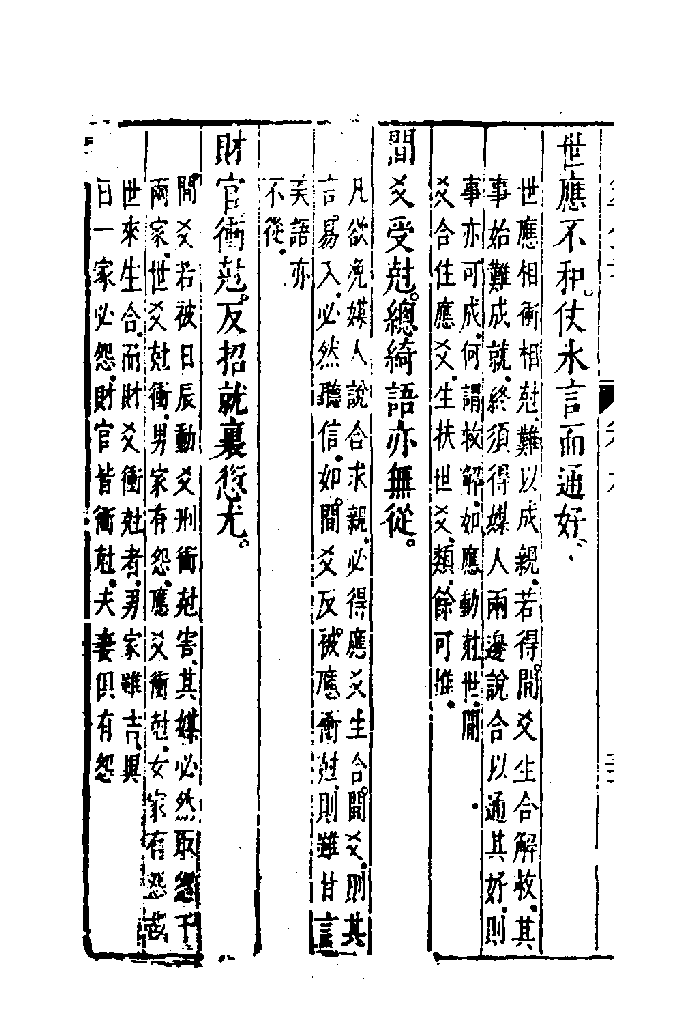 世應不和。伏氷言而通好、
世應相衝相尅、難以成親、若得間爻生合解救、其
事始難成就、終須得媒人兩邊說合以通其好、則
事亦可成、何謂救解、如應動尅世、間
爻合住應爻、生扶世爻、類餘可推、
間爻受尅。總綺語亦無從。
凡欲凂媒人說合求親、必得應爻生合間爻、則其
言易入、必然聽信、如間爻反被應衝尅、則雖甘言
美語亦
不從、
財官衝尅。反招就裏愆尤。
間爻若被日辰動爻刑衝尅害、其媒必然取怨于
兩家、世爻尅衝、男家有怨、應爻衝尅、女家有怨、或
世來生合、而財爻衝尅者、男家雖吉、與
日一家必怨、財官皆衝尅、夫妻俱有怨